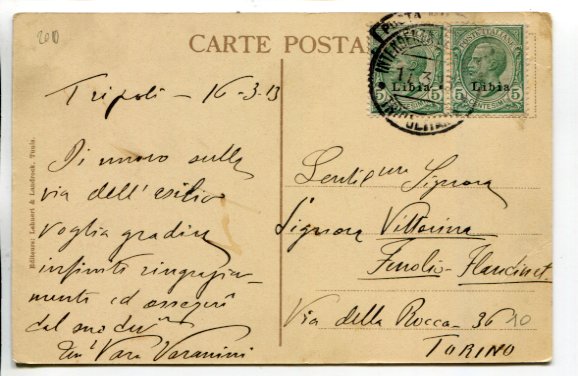 2010
CARTE POSTA
POSTE ITALIANE
Libia
5 CENTESIMI 5
Libia
Tripoli - 16-3-13
Di nuovo sulla
via dell'esilio
voglia gradire
infiniti ringrazia-
menti ed ossequi
dal suo
Varanini
Editeurs: Lehnert & Landrock, Tunis.
Gentil Signora
Signora Vittorina
Fenolio-Flandinet
Via della Rocca - 36 10
TORINO